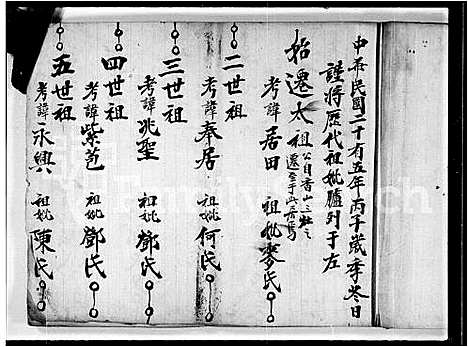 中華民國二十有五年丙子歲季冬日
謹將歷代祖妣臚列于左
始遷太祖
公自香山
遷至于此居焉
考諱居田 祖妣麥氏
二世祖
考諱奉居 祖妣何氏
三世祖
考諱兆聖 祖妣鄧氏
四世祖
考諱紫苞 祖妣鄧氏
五世祖
考諱永興 祖妣陳氏